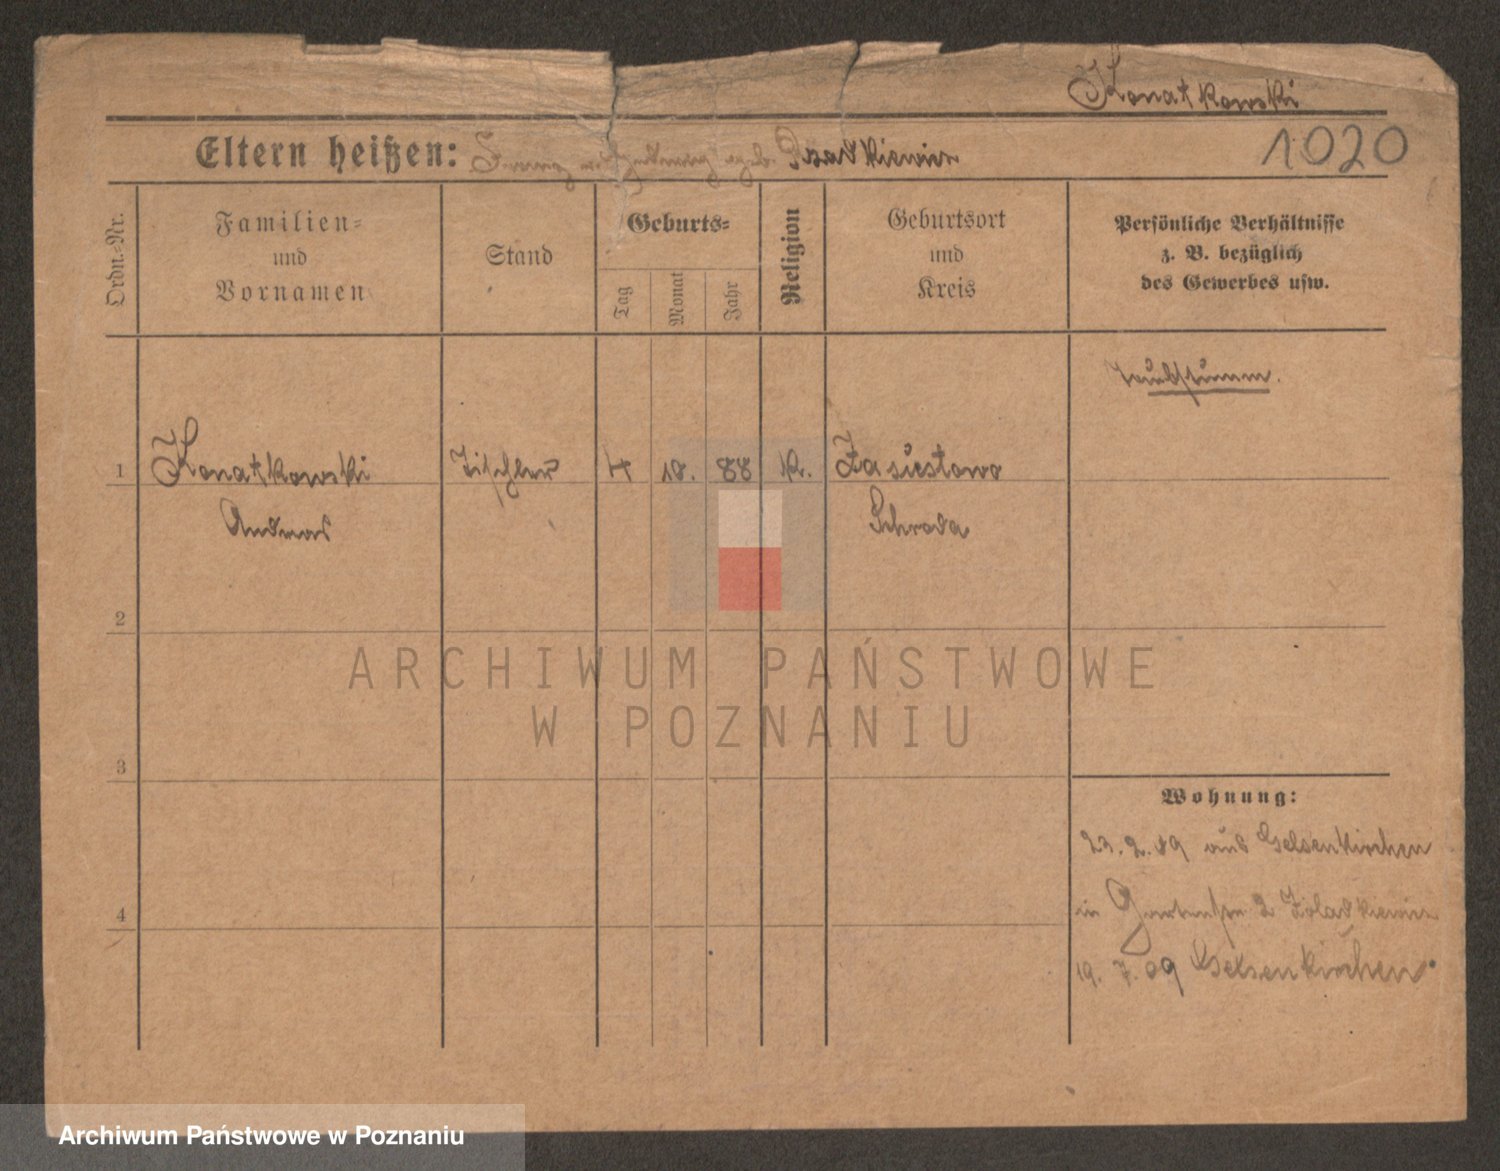 Konatkowski
Eltern heißen: Franz geb.
1020
Ordn.-Nr.
Familien-
und
Vornamen
Stand
Geburts-
Tag
Monat
Jahr
Religion
Geburtsort
und
Kreis
Persönliche Verhältnisse
z. B. bezüglich
des Gewerbes usw.
Taubstumm.
1 Konatkowski Tischler 4 10. 88 K. Zasiestowo
Andreas Schroda
2
ARCHIWUM PAŃSTWOWE
W POZNANIU
3
Wohnung:
23. 2. 09 aus Gelsenkirchen
in Gartenstr 2
4
19. 7. 09 Gelsenkirchen
Archiwum Państwowe w Poznaniu